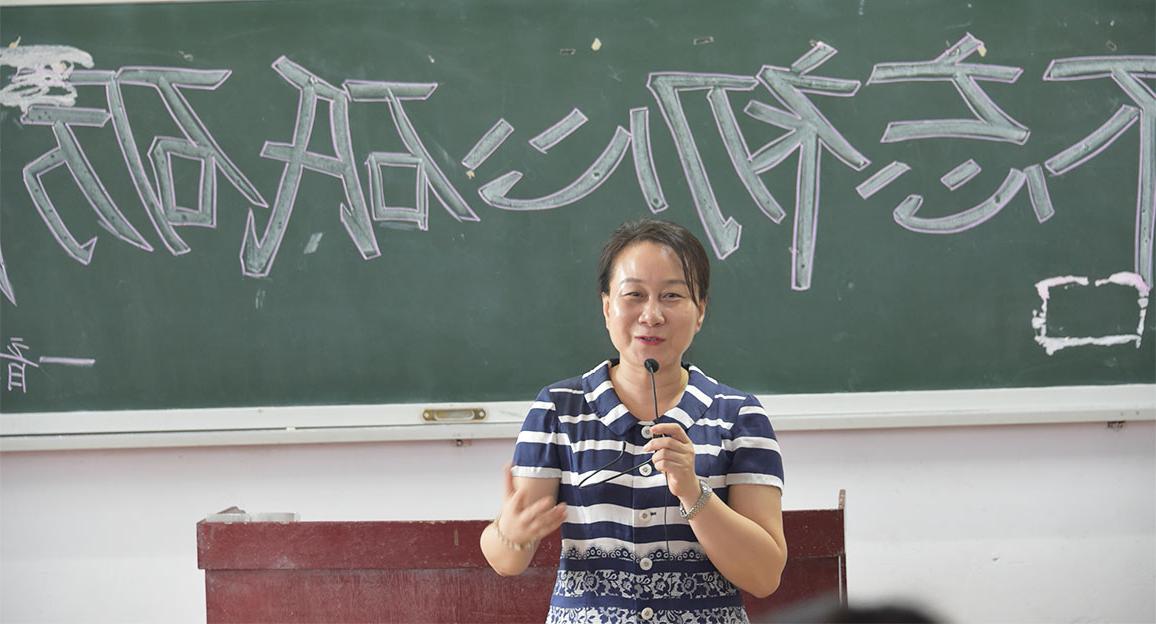 不忘初心砥砺